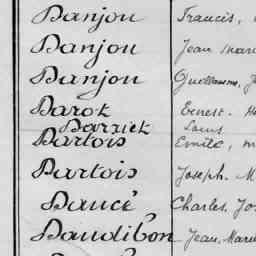 Danjou Francis,
Danjou Jean Mari
Danjou Guillaume, J
Darok Ernest. He
Darriek Louis
Dartois Emile, m
Dartois Joseph. M
Daucé Charles, Jos
Daudibon Jean, Marie